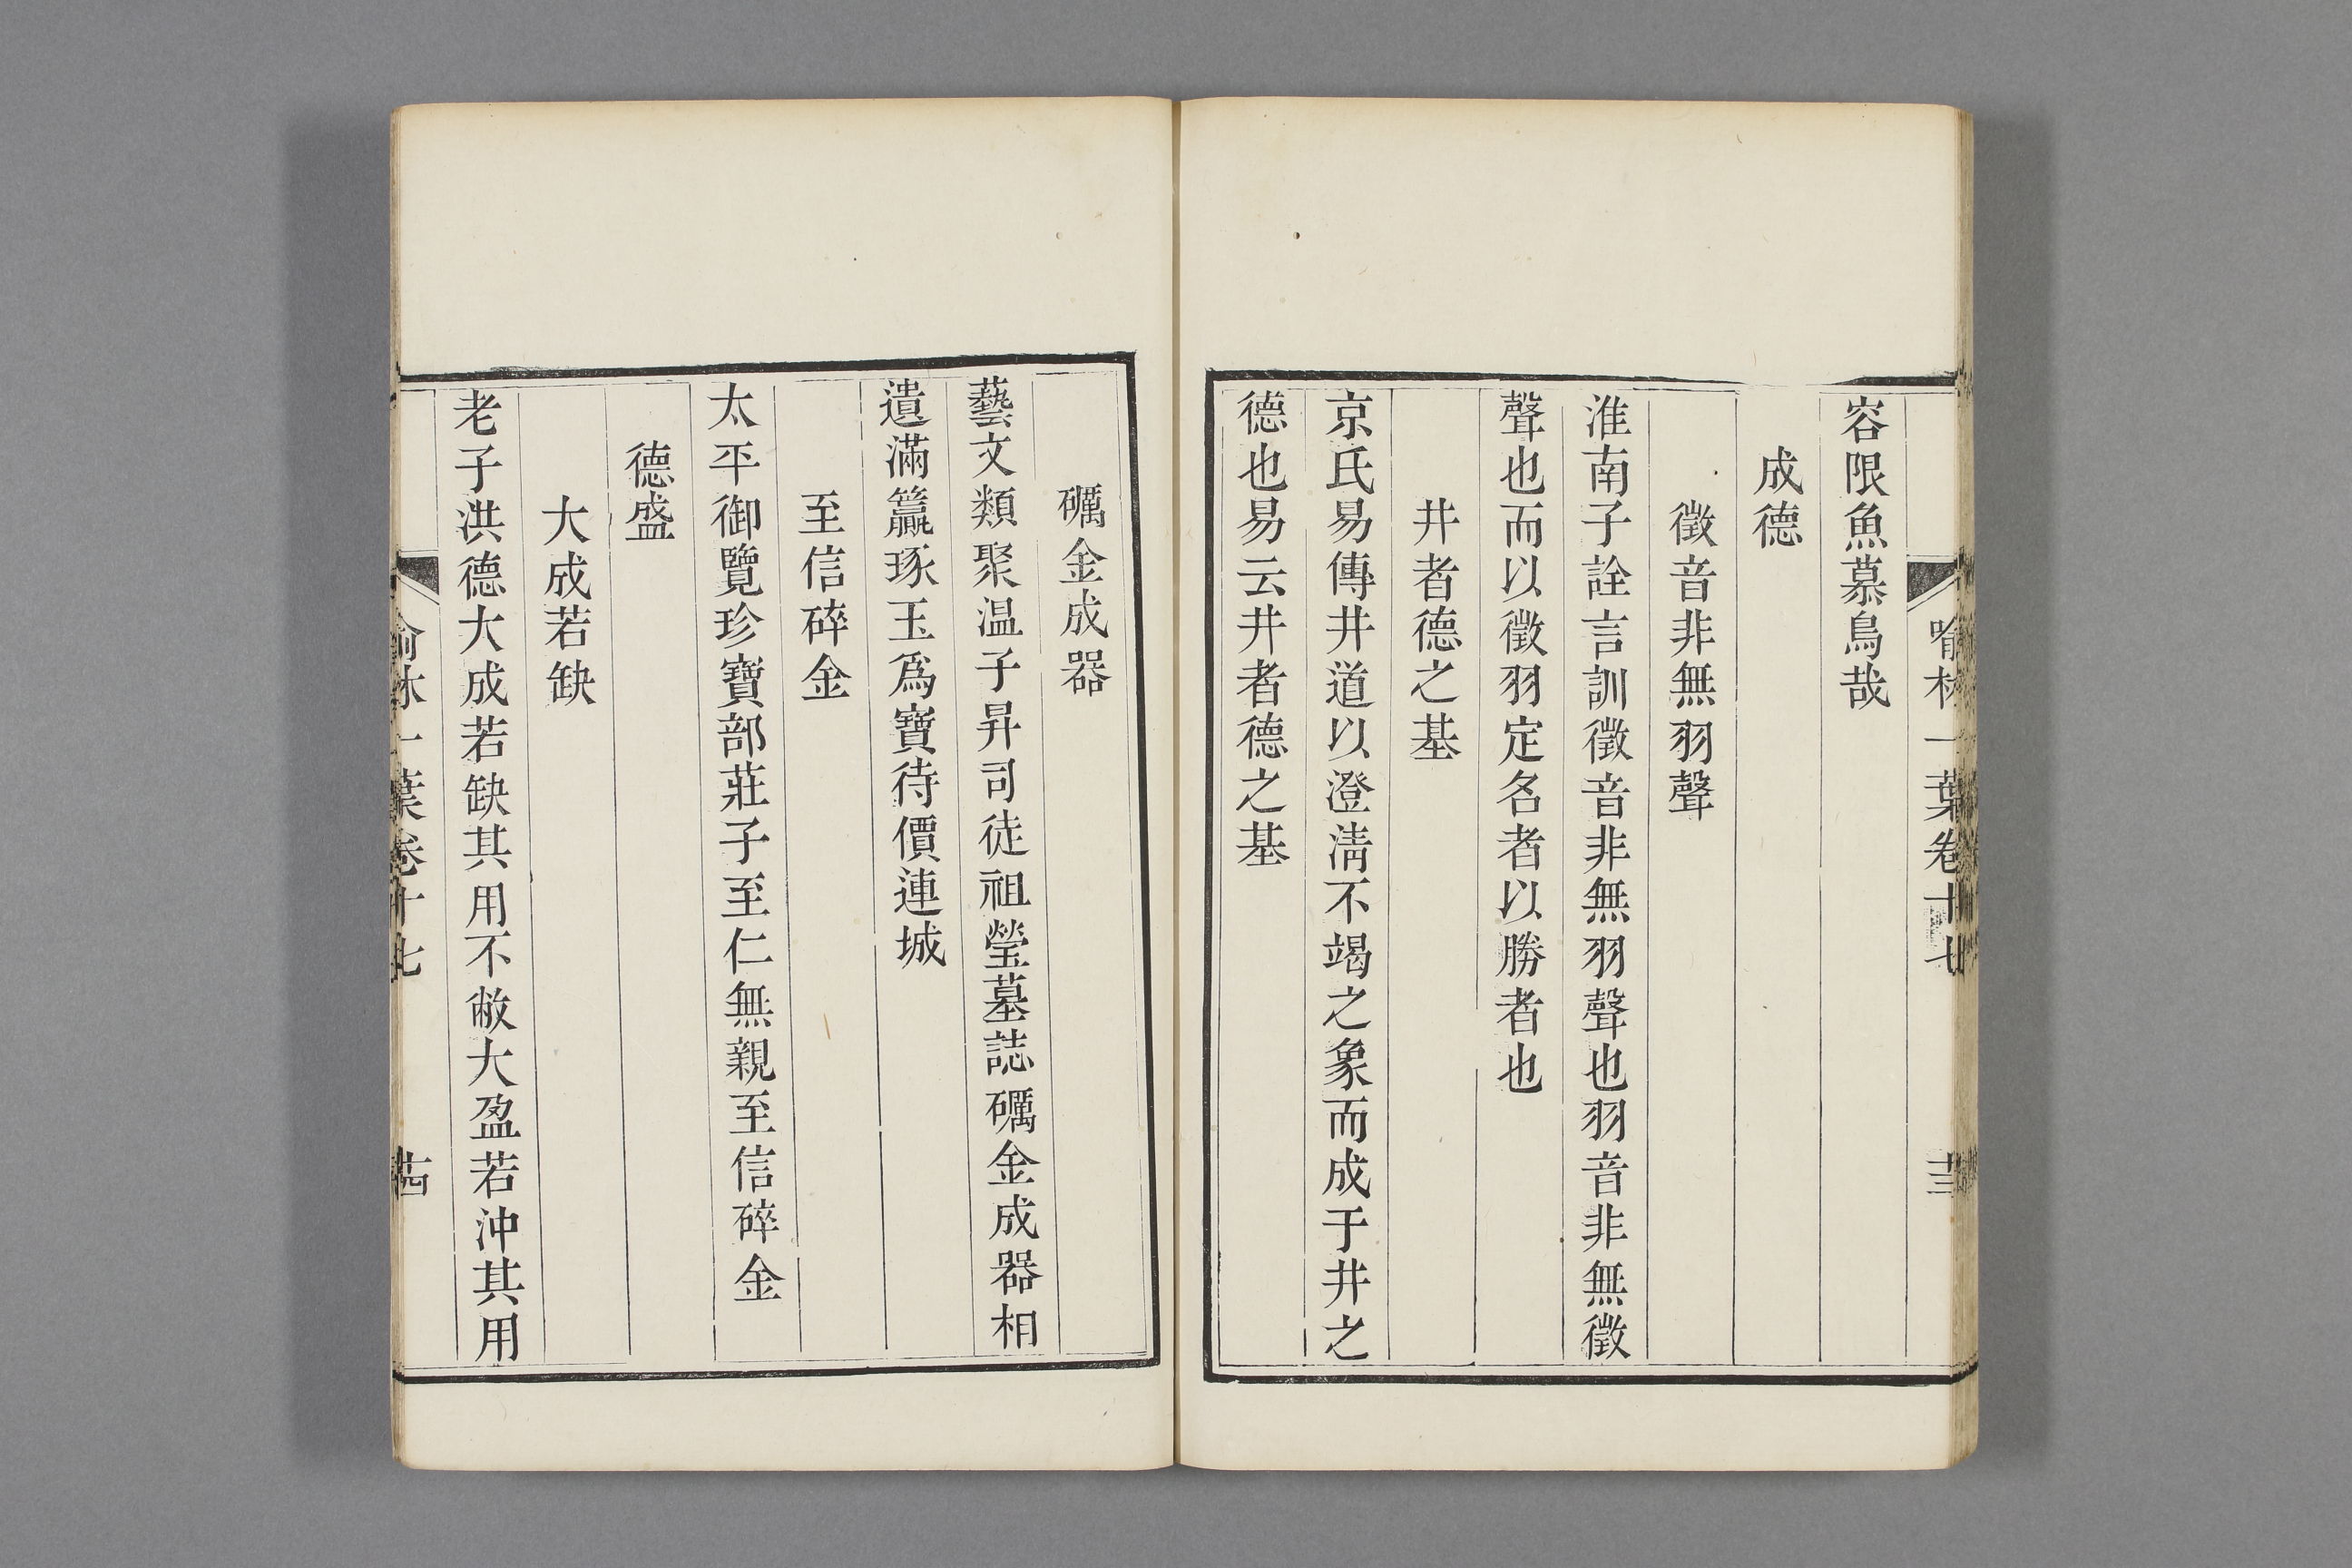 喻林一葉卷十七
十三
容限魚慕鳥哉
成德
徵音非無羽聲
淮南子詮言訓徵音非無羽聲也羽音非無徵
聲也而以徵羽定名者以勝者也
井者德之基
京氏易傳井道以澄淸不竭之象而成于井之
德也易云井者德之基
礪金成器
藝文類聚温子昇司徒祖瑩墓誌礪金成器相
遺滿籯琢玉爲寶待價連城
至信碎金
太平御覽珍寶部莊子至仁無親至信碎金
德盛
大成若缺
老子洪德大成若缺其用不敝大盈若沖其用
喻林一葉卷十七
十四